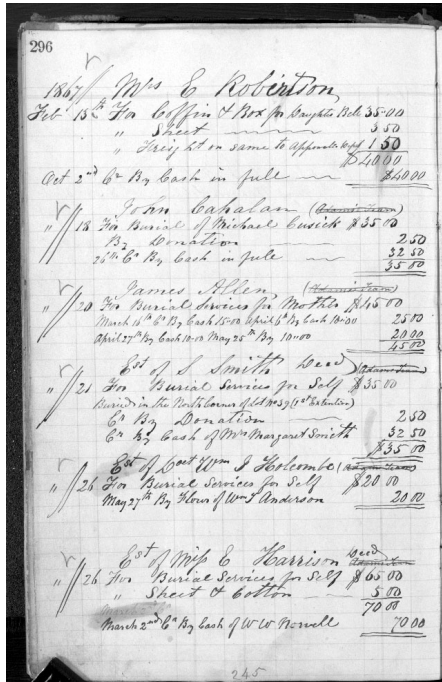 296
1867 Mrs E Robertson
Feb 15th For Coffin & Box for Daughter Bell 35.00
" Sheet 3 50
" Freight on same to Appomattox 1 50
$40 00
Oct 2nd Cr By Cash in full $40 00
John Cahalan (Adams Team)
" 18 For Burial of Michael Cusick $35 00
By Donation 2 50
26th Cr By Cash in full 32 50
35 00
James Allen (Adams Team)
" 20 For Burial Services for Mother $45 00
March 16th Cr By Cash 15.00 April 6th By Cash 10.00 25 00
April 27th By Cash 10.00 May 25th By 10.00 20 00
45 00
Est of S Smith Decd (Adams Team)
" 21 For Burial Services for Self $35 00
Buried in the North Corner of Lot No 39 (1st Extention)
Cr By Donation 2 50
Cr By Cash of Mrs Margaret Smith 32 50
$35 00
Est of Doct Wm J Holcombe (Adams Team)
" 26 For Burial Services for Self $20 00
May 27th By Flour of Wm J Anderson 20 00
Est of Miss E Harrison Decd Adams Team
" 26 For Burial Services for Self $65 00
" Sheet & Cotton 5 00
70 00
March 2nd Cr By Cash of W W Norvell 70 00
245